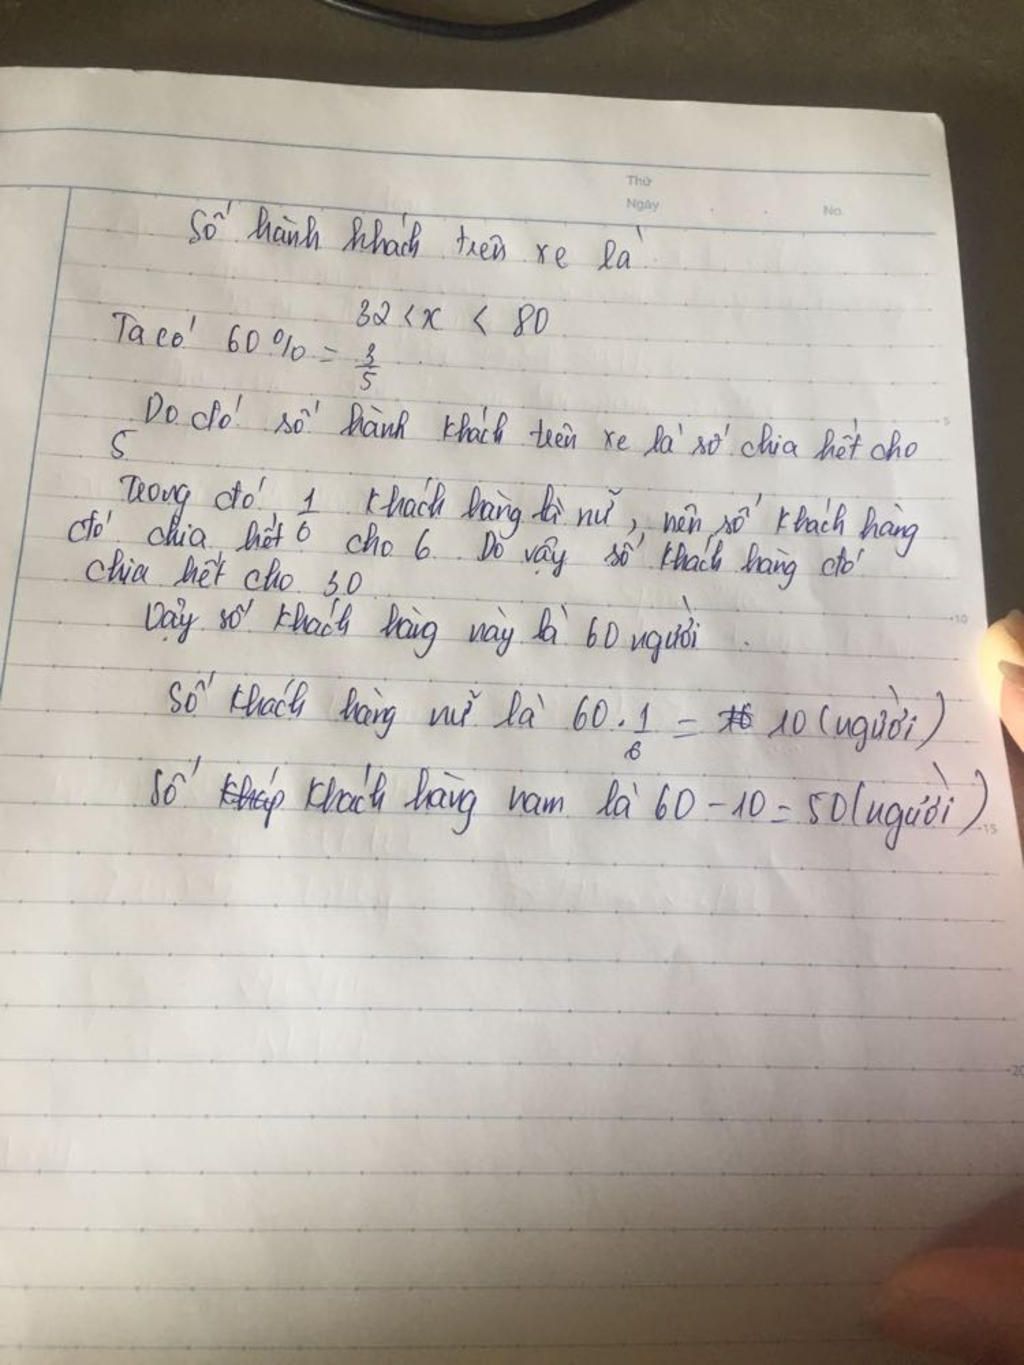 Thứ
Ngày
No.
Số hành khách trên xe là
32 < x < 80
Ta có 60% = 3/5
Do đó số hành khách trên xe là số chia hết cho
5
Trong đó 1/6 khách hàng là nữ, nên số khách hàng
đó chia hết cho 6. Do vậy số khách hàng đó
chia hết cho 30
Vậy số khách hàng này là 60 người.
Số khách hàng nữ là 60 . 1/6 = 10 (người)
Số khách hàng nam là 60 - 10 = 50 (người)
5
10
15
20